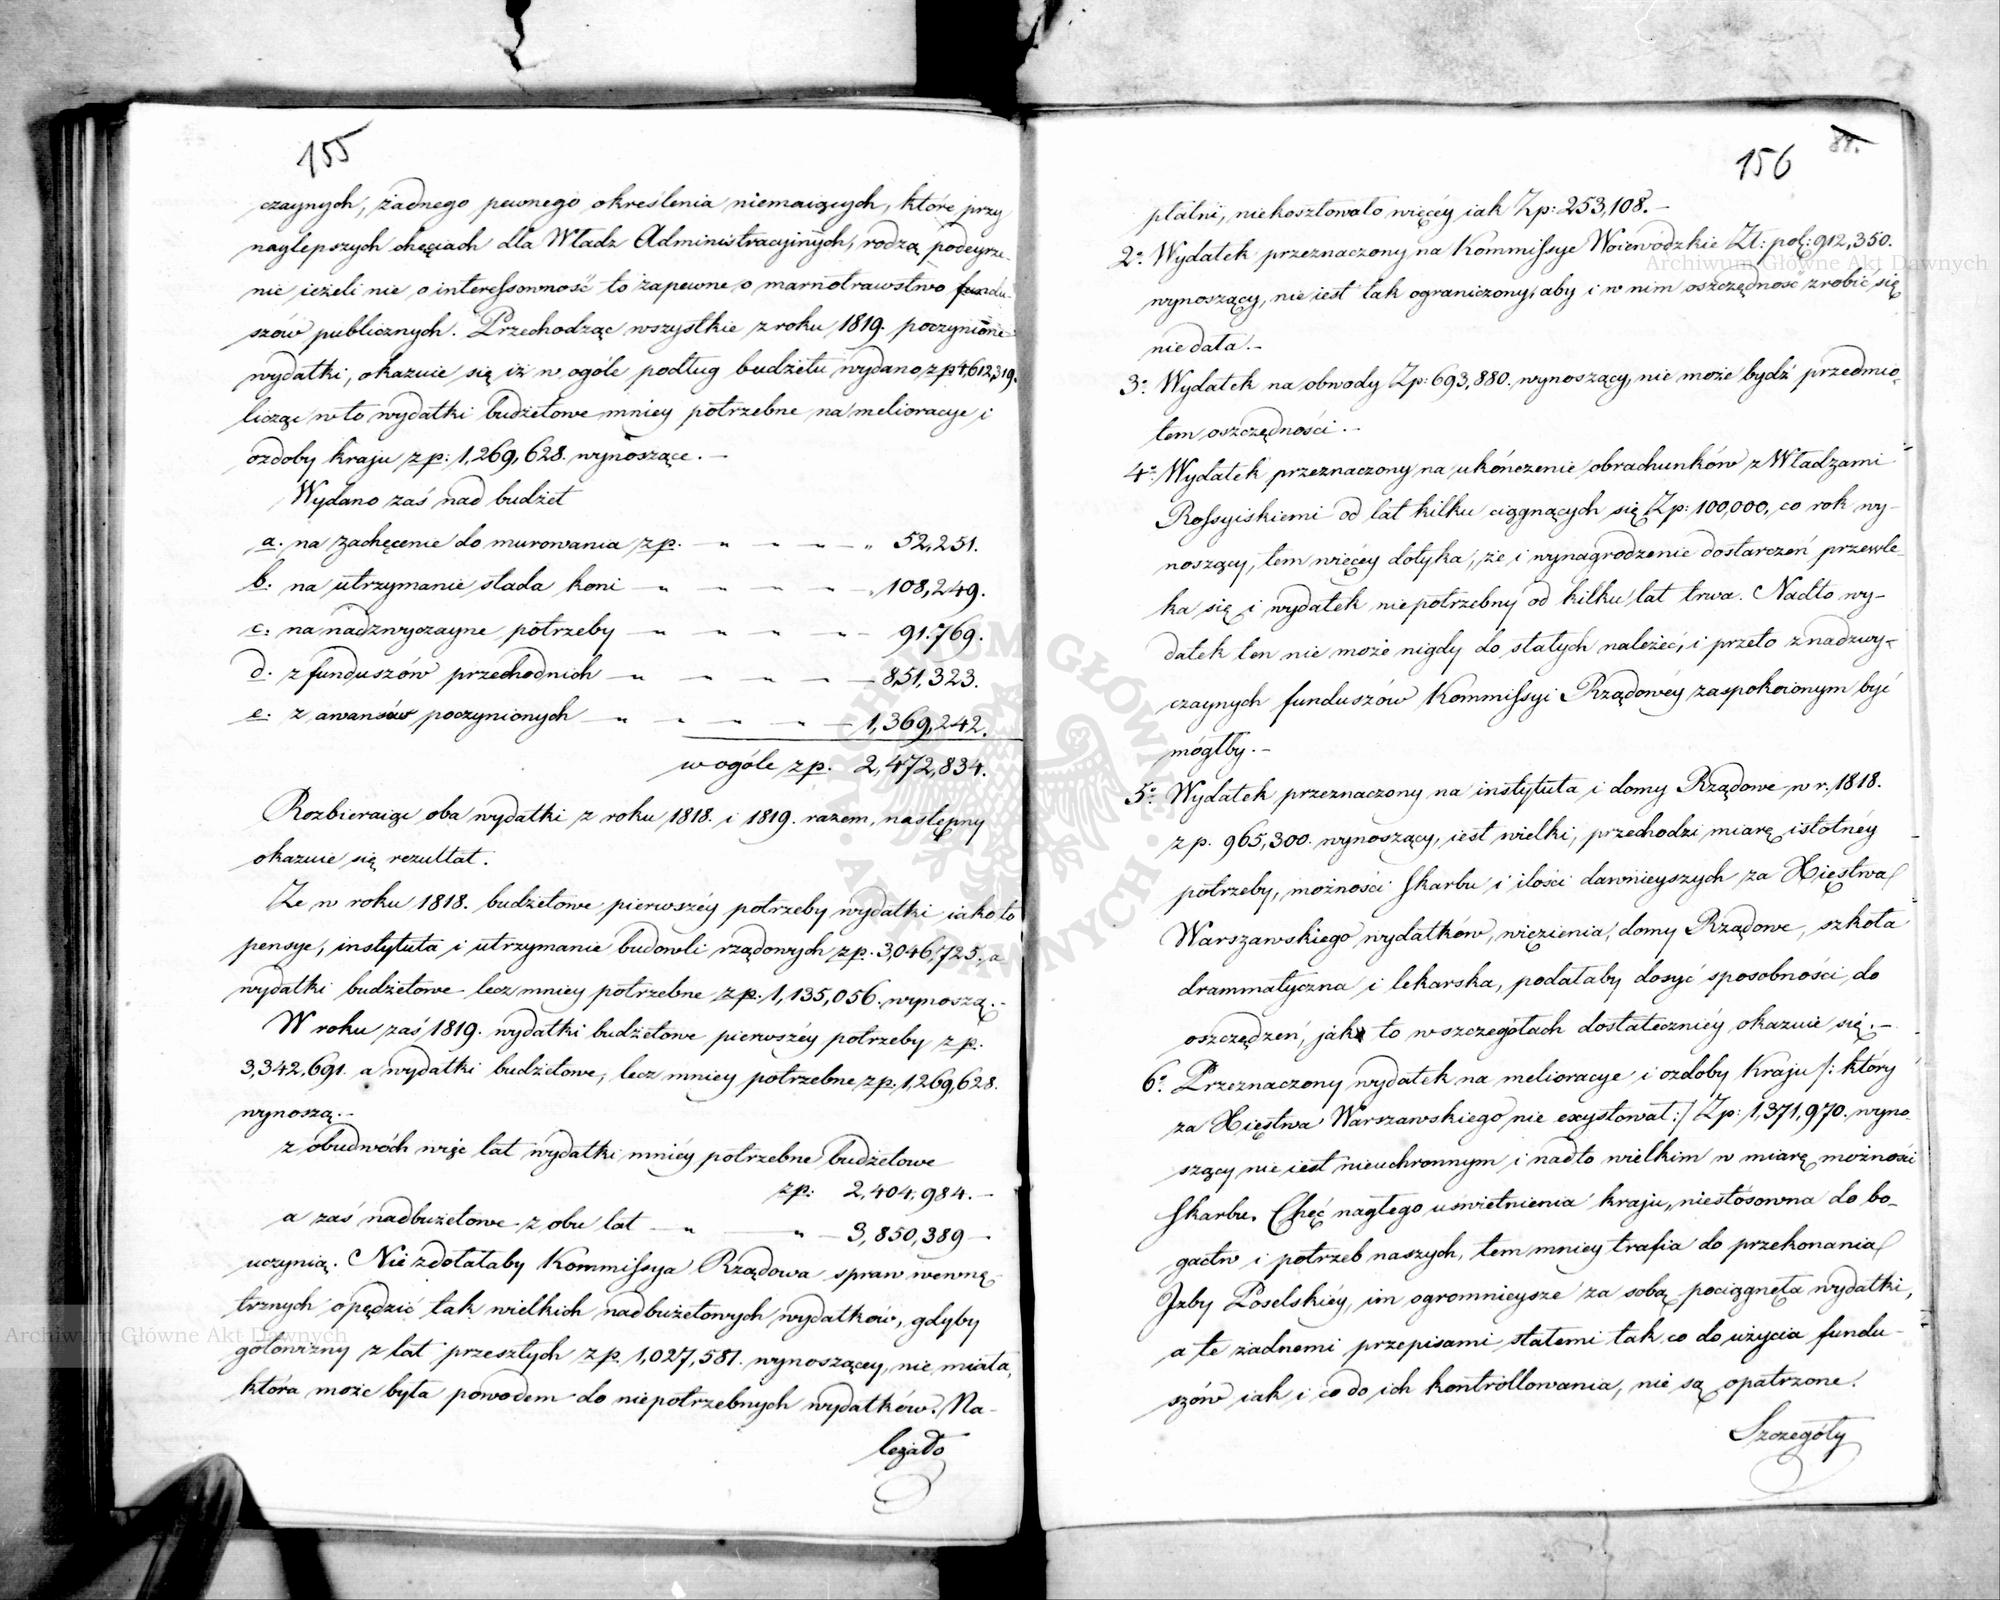 155
czaynych, żadnego pewnego określenia niemaiących, które przy
naylepszych chęciach dla Władz Administracyinych, rodzą podeyrze-
nie ieżeli nie o interessowność to zapewne o marnotrawstwo fundu-
szów publicznych. Przechodząc wszystkie z roku 1819. poczynione
wydatki, okazuie się iż w ogóle podług budżetu wydano zp 4,612,319.
licząc w to wydatki budżetowe mniey potrzebne na melioracye i
ozdoby kraju zp: 1,269,628. wynoszące. –
Wydano zaś nad budżet
a. na zachęcenie do murowania zp. – „ – „ – „ 52,251.
b. na utrzymanie stada koni – „ – „ – „ 108,249.
c. na nadzwyczayne potrzeby – „ – „ – „ – 91.769.
d. z funduszów przechodnich – „ – „ – „ – 851,323.
e. z awansów poczynionych – „ – „ – „ – 1,369,242.
w ogóle zp. 2,472,834.
Rozbieraiąc oba wydatki z roku 1818. i 1819. razem, następny
okazuie się rezultat.
Że w roku 1818. budżetowe pierwszéy potrzeby wydatki iako to
pensye, instytuta i utrzymanie budowli rządowych zp. 3,046,725. a
wydatki budżetowe lecz mniey potrzebne zp. 1,135,056. wynoszą. –
W roku zaś 1819. wydatki budżetowe pierwszéy potrzeby zp.
3,342,691. a wydatki budżetowe, lecz mniey potrzebne zp. 1,269,628.
wynoszą. –
z obudwóch więc lat wydatki mniéy potrzebne budżetowe
zp: 2,404,984. –
a zaś nadbużetowe z obu lat – „ – „ – 3,850,389 –
uczynią. Nie zdołałaby Kommissya Rządowa spraw wewnę-
trznych opędzić tak wielkich nadbużetowych wydatków, gdyby
gotowizny z lat przeszłych zp. 1,027,581. wynoszącey, nie miała,
która może była powodem do niepotrzebnych wydatków. Na-
leżało
156
88.
płatni, niekosztowało więcéy iak Zp: 253,108. –
2o. Wydatek przeznaczony na Kommissye Woiewódzkie Zł: pol: 912,350.
wynoszący, nie iest tak ograniczony, aby i w nim oszczędność zrobić się
nie dała. –
3o. Wydatek na obwody Zp: 693,880. wynoszący, nie może bydź przedmio-
tem oszczędności. –
4o. Wydatek przeznaczony na ukończenie obrachunków z Władzami
Rossyiskiemi od lat kilku ciągnących się Zp: 100,000, co rok wy-
noszący, tem więcey dotyka, że i wynagrodzenie dostarczeń przewle-
ka się i wydatek niepotrzebny od kilku lat trwa. Nadto wy-
datek ten nie może nigdy do stałych należeć, i przeto z nadzwy-
czaynych funduszów Kommissyi Rządowéy zaspokoionym być
mógłby. –
5o. Wydatek przeznaczony na instytuta i domy Rządowe w r. 1818.
zp. 965,300. wynoszący, iest wielki, przechodzi miarę istotnéy
potrzeby, możności Skarbu i ilości dawnieyszych za Xięstwa
Warszawskiego wydatków, więzienia, domy Rządowe, szkoła
drammatyczna i lekarska, podałaby dosyć sposobności do
oszczędzeń, jak to w szczegółach dostateczniéy okazuie się. –
6o. Przeznaczony wydatek na melioracye i ozdoby Kraju /: który
za Xięstwa Warszawskiego nie exystował :/ Zp: 1,371,970. wyno-
szący nie iest nieuchronnym i nadto wielkim w miarę możności
Skarbu. Chęć nagłego uświetnienia kraju, niestósowna do bo-
gactw i potrzeb naszych, tem mniey trafia do przekonania
Izby Poselskiéy, im ogromnieysze za sobą pociągnęła wydatki,
a te żadnemi przepisami stałemi tak co do użycia fundu-
szów iak i co do ich kontrollowania, nie są opatrzone.
Szczegóły
Archiwum Główne Akt Dawnych
Archiwum Główne Akt Dawnych
ARCHIWUM GŁÓWNE AKT DAWNYCH